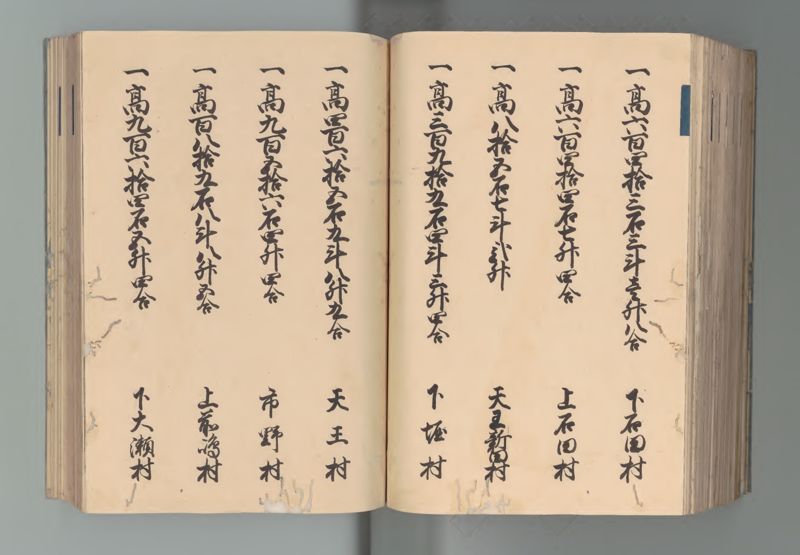 一高六百四拾三石三斗壱升八合 下石田村
一高六百四拾四石七升四合 上石田村
一高八拾五石七斗弐升 天王新田村
一高三百九拾九石四斗三升四合 下堀村
一高四百六拾五石九斗八升九合 天王村
一高九百五拾六石四升四合 市野村
一高百八拾九石八斗八升五合 上前嶋村
一高九百六拾四石五升四合 下大瀬村